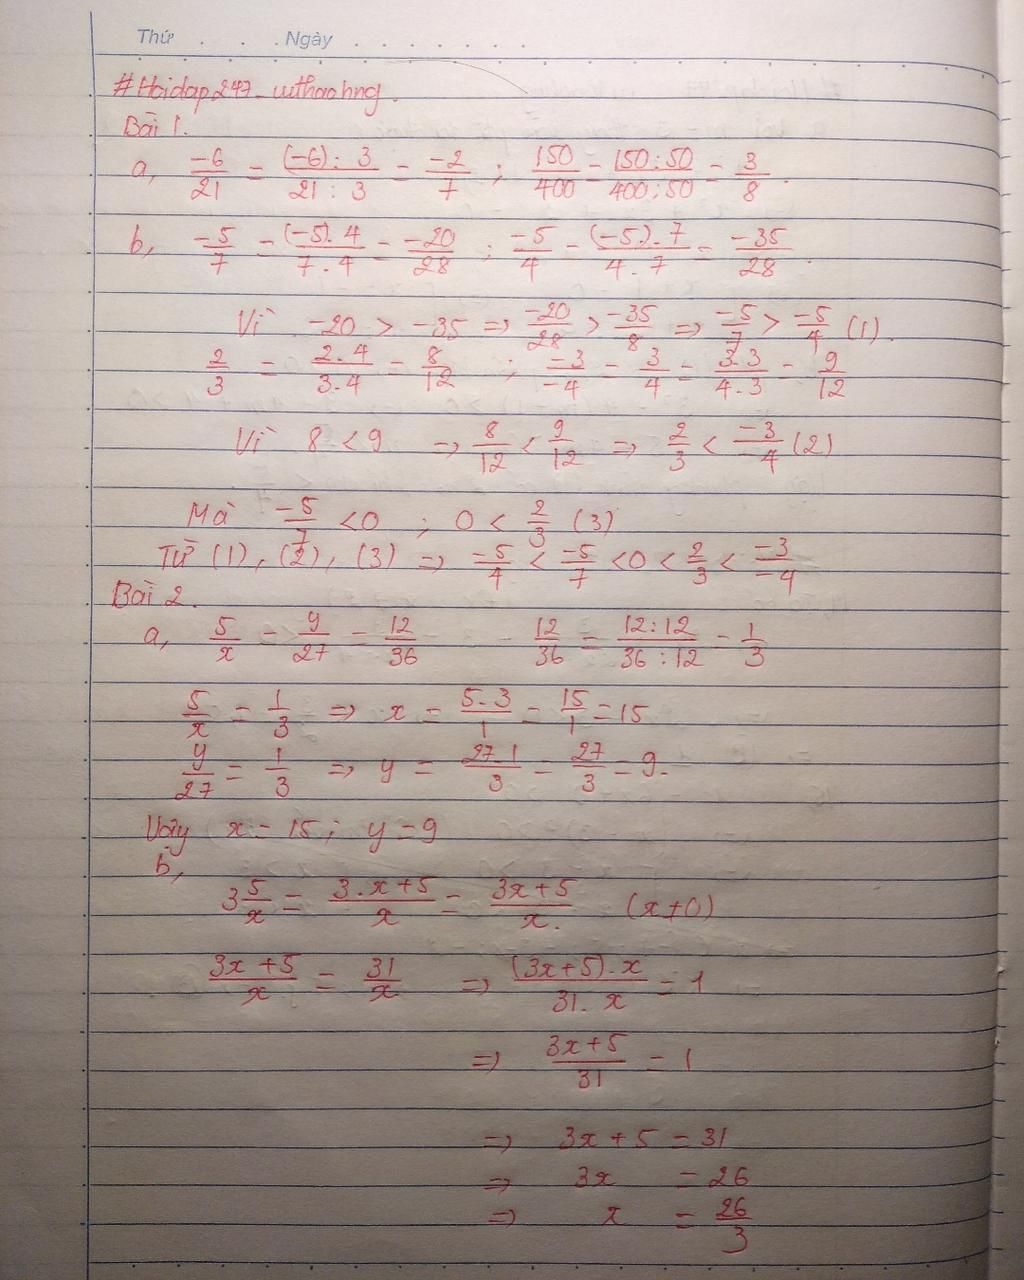 Thứ . . . Ngày . . . . . . .
#Hoidap247_
Bài 1.
a, -6/21 = (-6):3/21:3 = -2/7 ; 150/400 = 150:50/400:50 = 3/8.
b, -5/7 = (-5).4/7.4 = -20/28 ; -5/4 = (-5).7/4.7 = -35/28.
Vì -20 > -35 => -20/28 > -35/8 => -5/7 > -5/4 (1).
2/3 = 2.4/3.4 = 8/12 ; -3/-4 = 3/4 = 3.3/4.3 = 9/12
Vì 8 < 9 => 8/12 < 9/12 => 2/3 < -3/-4 (2)
Mà -5/7 < 0 ; 0 < 2/3 (3)
Từ (1), (2), (3) => -5/4 < -5/7 < 0 < 2/3 < -3/-4
Bài 2.
a, 5/x = y/27 = 12/36 12/36 = 12:12/36:12 = 1/3
5/x = 1/3 => x = 5.3/1 = 15/1 = 15
y/27 = 1/3 => y = 27.1/3 = 27/3 = 9.
Vậy x = 15; y = 9
b,
3 5/x = 3.x+5/x = 3x+5/x. (x≠0)
3x+5/x = 31/x => (3x+5).x/31.x = 1
=> 3x+5/31 = 1
=> 3x+5 = 31
=> 3x = 26
=> x = 26/3